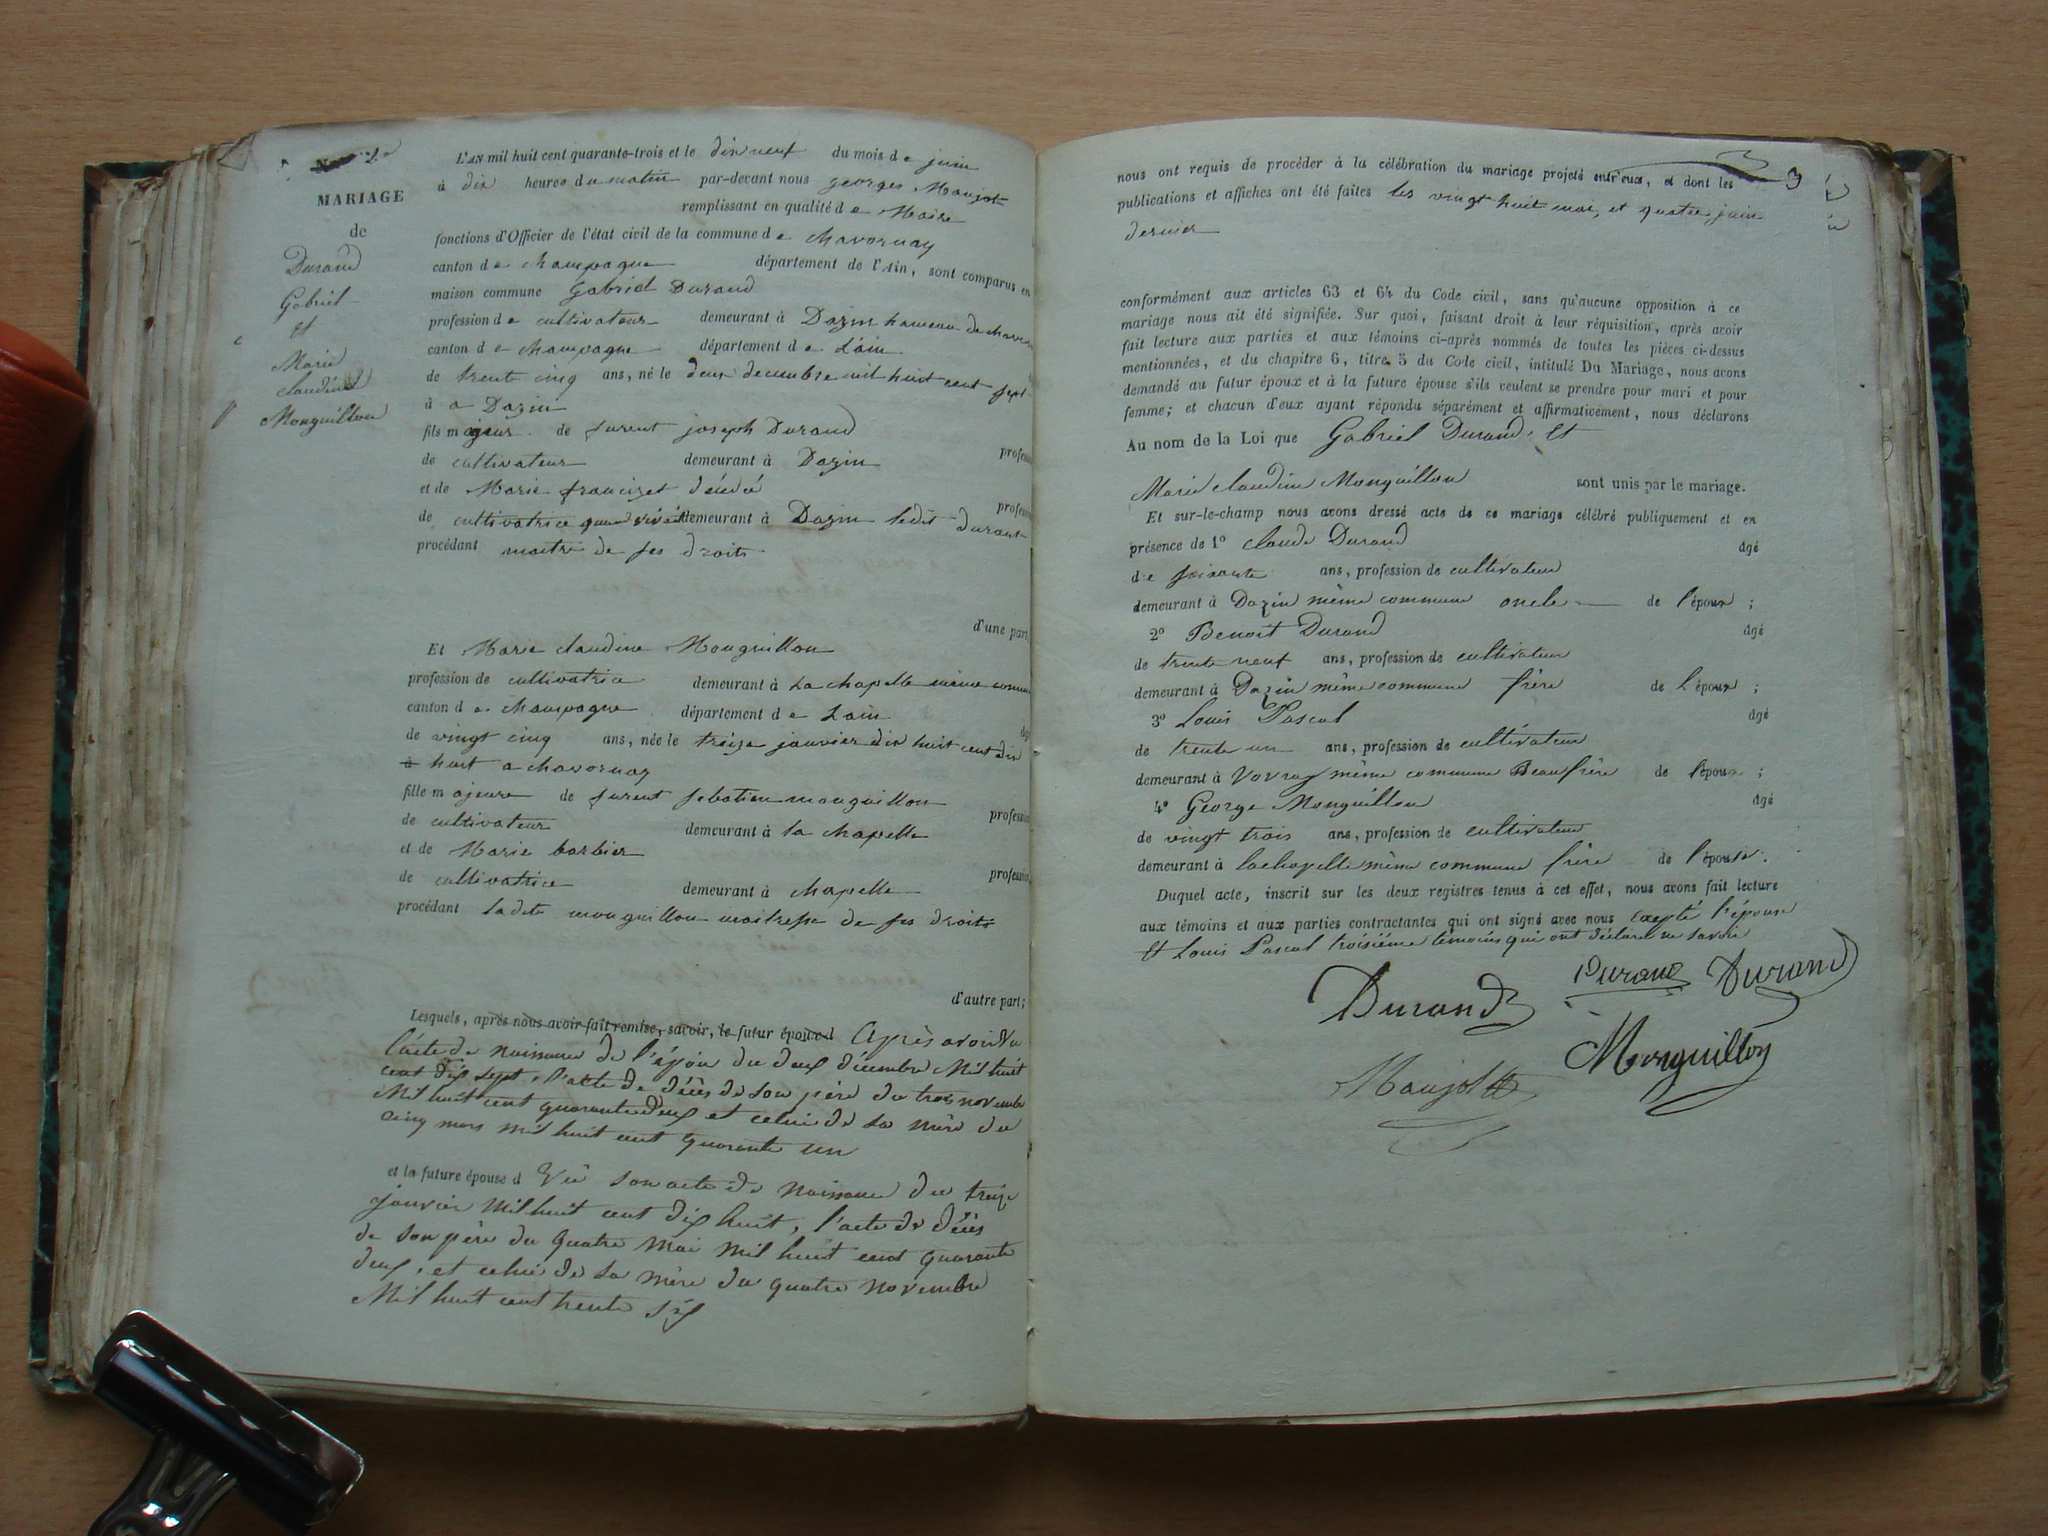 N° 2
MARIAGE
de
Durand
Gabriel
Et
Marie
claudine
Monguillon
L'AN mil huit cent quarante-trois et le dix neuf du mois de juin
à dix heures du matin par-devant nous georges Maujot
remplissant en qualité de Maire
fonctions d'Officier de l'état civil de la commune de chavornay
canton de champagne département de l'Ain, sont comparus en
maison commune Gabriel Durand
profession de cultivateur demeurant à Dazin hameau de
canton de champagne département de L'ain
de trente cinq ans, né le deux decembre mil huit cent sept
à a Dazin
fils majeur de furent joseph Durand
de cultivateur demeurant à Dazin profes
et de Marie françizet décédé
de cultivatrice quand vivait demeurant à Dazin ledit durant
procédant maitre de ses droits
d'une part,
Et Marie claudine Monguillon
profession de cultivatrice demeurant à La chapelle même
canton de champagne département de Lain
de vingt cinq ans, née le treize janvier dix huit cent dix
à huit a chavornay
fille majeure de furent sebatien monguillon
de cultivateur demeurant à la chapelle professio
et de Marie barbier
de cultivatrice demeurant à chapelle profession
procédant ladite monguillon maitresse de ses droits
d'autre part;
Lesquels, après nous avoir fait remise, savoir, le futur époux d Après avoir Vu
l'acte de naissance de l'époux du deux décembre Mil huit
cent dix sept, l'acte de décès de son père du trois novembre
Mil huit cent quarante deux et celui de sa mère du
cinq mars mil huit cent quarante un
et la future épouse d Vu son acte de Naissance du treize
janvier Mil huit cent dix huit, l'acte de décès
de son père du quatre Mai Mil huit cent quarante
deux, et celui de sa mère du quatre novembre
Mil huit cent trente six
3
nous ont requis de procéder à la célébration du mariage projeté entr'eux, et dont les
publications et affiches ont été faites les vingt huit mai, et quatre juin
dernier
conformément aux articles 63 et 64 du Code civil, sans qu'aucune opposition à ce
mariage nous ait été signifiée. Sur quoi, faisant droit à leur réquisition, après avoir
fait lecture aux parties et aux témoins ci-après nommés de toutes les pièces ci-dessus
mentionnées, et du chapitre 6, titre 5 du Code civil, intitulé Du Mariage, nous avons
demandé au futur époux et à la future épouse s'ils veulent se prendre pour mari et pour
femme; et chacun d'eux ayant répondu séparément et affirmativement, nous déclarons
Au nom de la Loi que Gabriel Durand, Et
Marie claudine Monguillon sont unis par le mariage.
Et sur-le-champ nous avons dressé acte de ce mariage célébré publiquement et en
présence de 1° claude Durand âgé
de soixante ans, profession de cultivateur
demeurant à Dazin même commune oncle de l'époux ;
2° Benoit Durand âgé
de trente neuf ans, profession de cultivateur
demeurant à Dazin même commune frère de L'époux ;
3° Louis Pascal âgé
de trente un ans, profession de cultivateur
demeurant à Vovray même commune Beaufrère de l'époux ;
4° George Monguillon âgé
de vingt trois ans, profession de cultivateur
demeurant à lachapelle même commune frère de l'épouse.
Duquel acte, inscrit sur les deux registres tenus à cet effet, nous avons fait lecture
aux témoins et aux parties contractantes qui ont signé avec nous excepté l'épouse
Et Louis Pascal troisième témoins qui ont déclaré ne savoir
Durand Durand Durand
Monguillon
Maujot